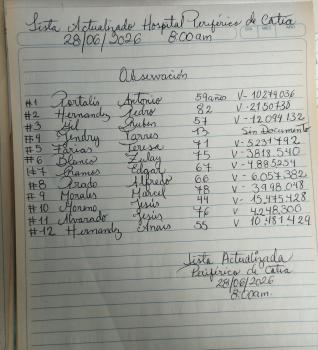 Lista Actualizado Hospital Periférico de Catia
28/06/2026 8:00am
Observación
#1 Portalis Antonio 59años V-10274036
#2 Hernandez Pedro 82 V-2150730
#3 Gil Ruben 57 V-12099132
#4 Yendry Torres 13 Sin Documento
#5 Farias Teresa 71 V-5231792
#6 Blanco Zulay 75 V-3818.540
#7 Ramos Edgar 67 V-4885254
#8 Prado Alfredo 66 V-6.057.382
#9 Morales Marcel 78 V-3998.048
#10 Moreno Jesús 44 V-15.475.428
#11 Alvarado Jesús 76 V-4248.306
#12 Hernandez Anais 55 V-10.481429
Lista Actualizada
Periférico de Catia
28/06/2026
8:00am.